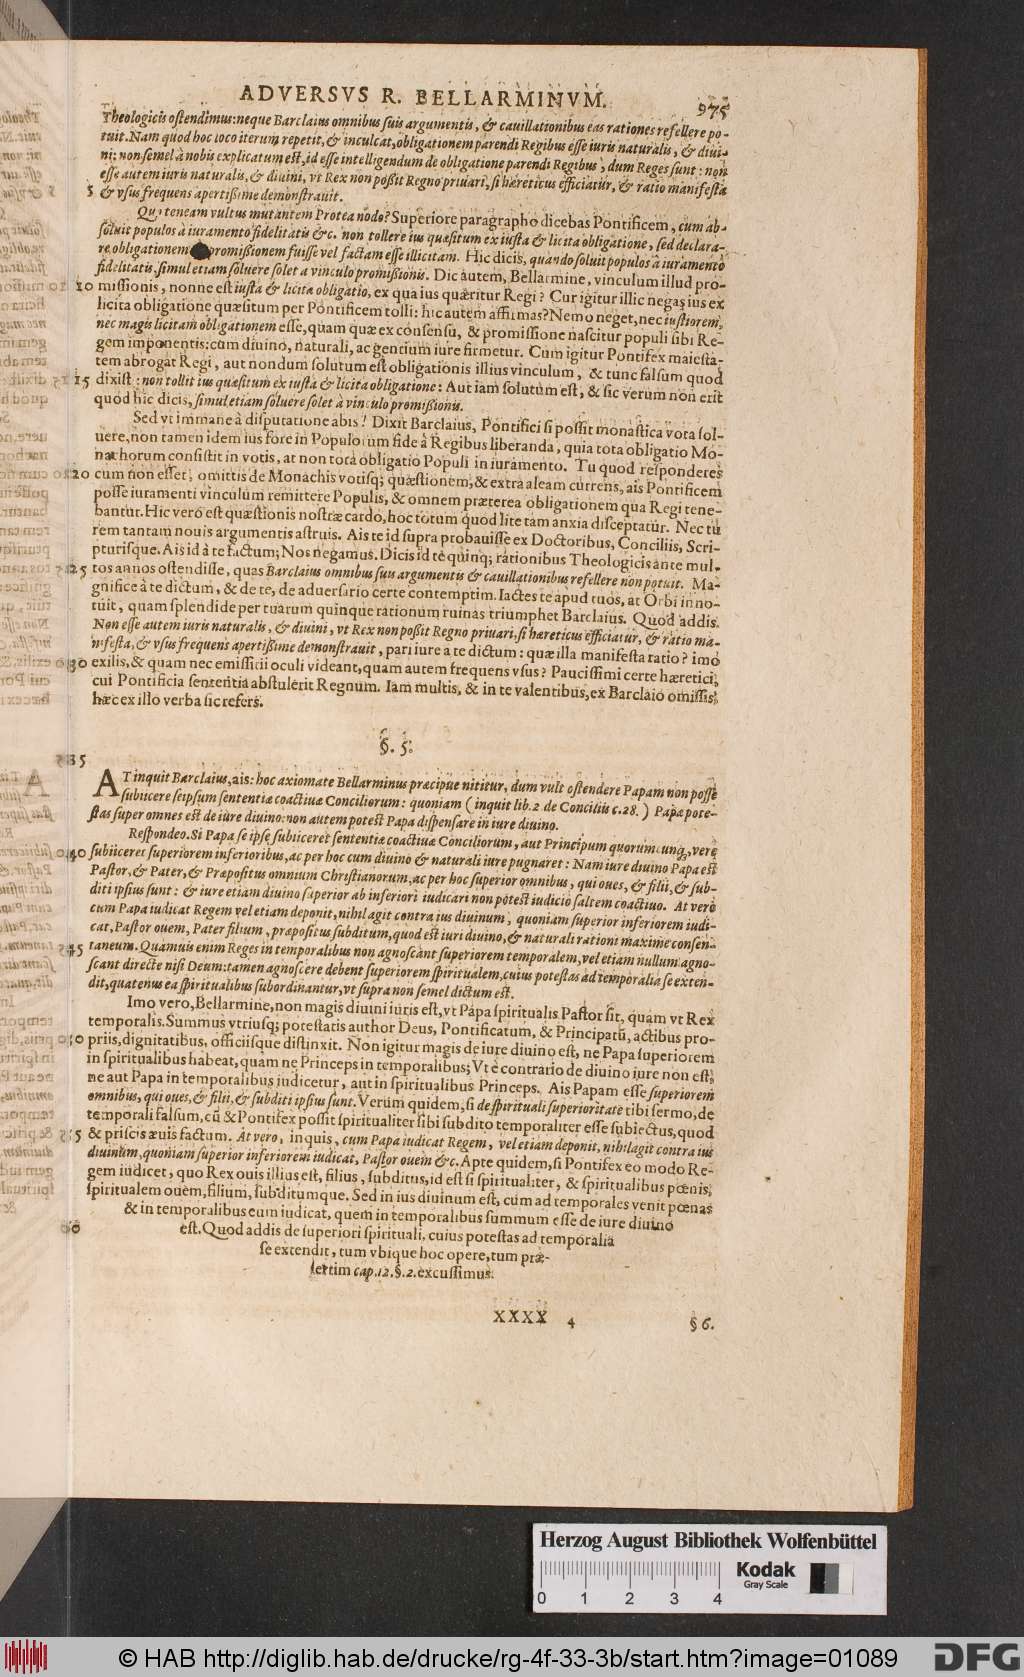 ADVERSVS R. BELLARMINVM. 975
Theologicis ostendimus: neque Barclaius omnibus suis argumentis, & cauillationibus eas rationes refellere po-
tuit. Nam quod hoc loco iterum repetit, & inculcat, obligationem parendi Regibus esse iuris naturalis, & diui-
ni: non semel à nobis explicatum est, id esse intelligendum de obligatione parendi Regibus, dum Reges sunt: non
esse autem iuris naturalis, & diuini, vt Rex non poßit Regno priuari, si hæreticus efficiatur, & ratio manifesta
5 & vsus frequens apertißime demonstrauit.
Quo teneam vultus mutantem Protea nodo? Superiore paragrapho dicebas Pontificem, cum ab-
soluit populos à iuramento fidelitatis &c. non tollere ius quæsitum ex iusta & licita obligatione, sed declara-
re obligationem promißionem fuisse vel factam esse illicitam. Hic dicis, quando soluit populos à iuramento
fidelitatis, simul etiam soluere solet a vinculo promißionis. Dic autem, Bellarmine, vinculum illud pro-
10 missionis, nonne est iusta & licita obligatio, ex qua ius quæritur Regi? Cur igitur illic negas ius ex
licita obligatione quæsitum per Pontificem tolli: hic autem affirmas? Nemo neget, nec iustiorem,
nec magis licitam obligationem esse, quam quæ ex consensu, & promissione nascitur populi sibi Re-
gem imponentis: cùm diuino, naturali, ac gentium iure firmetur. Cum igitur Pontifex maiesta-
tem abrogat Regi, aut nondum solutum est obligationis illius vinculum, & tunc falsum quod
15 dixisti: non tollit ius quæsitum ex iusta & licita obligatione: Aut iam solutum est, & sic verum non erit
quod hic dicis, simul etiam soluere solet à vinculo promißionis.
Sed vt immane à disputatione abis! Dixit Barclaius, Pontifici si possit monastica vota sol-
uere, non tamen idem ius fore in Populorum fide à Regibus liberanda, quia tota obligatio Mo-
nachorum consistit in votis, at non tota obligatio Populi in iuramento. Tu quod responderes
20 cum non esset, omittis de Monachis votisq; quæstionem, & extra aleam currens, ais Pontificem
posse iuramenti vinculum remittere Populis, & omnem præterea obligationem qua Regi tene-
bantur. Hic verò est quæstionis nostræ cardo, hoc totum quod lite tam anxia disceptatur. Nec tu
rem tantam nouis argumentis astruis. Ais te id supra probauisse ex Doctoribus, Conciliis, Scri-
pturisque. Ais id à te factum; Nos negamus. Dicis id te quinq; rationibus Theologicis ante mul-
25 tos annos ostendisse, quas Barclaius omnibus suis argumentis & cauillationibus refellere non potuit. Ma-
gnifice à te dictum, & de te, de aduersario certe contemptim. Iactes te apud tuos, at Orbi inno-
tuit, quam splendide per tuarum quinque rationum ruinas triumphet Barclaius. Quod addis.
Non esse autem iuris naturalis, & diuini, vt Rex non poßit Regno priuari, si hæreticus efficiatur, & ratio ma-
nifesta, & vsus frequens apertißime demonstrauit, pari iure a te dictum: quæ illa manifesta ratio? imò
30 exilis, & quam nec emissicii oculi videant, quam autem frequens vsus? Paucissimi certe hæretici,
cui Pontificia sententia abstulerit Regnum. Iam multis, & in te valentibus, ex Barclaio omissis,
hæc ex illo verba sic refers.
§. 5.
35
AT inquit Barclaius, ais: hoc axiomate Bellarminus præcipue nititur, dum vult ostendere Papam non posse
subiicere seipsum sententiæ coactiuæ Conciliorum: quoniam (inquit lib. 2 de Conciliis c. 28.) Papæ pote-
stas super omnes est de iure diuino: non autem potest Papa dispensare in iure diuino.
Respondeo. Si Papa se ipse subiiceret sententiæ coactiuæ Conciliorum, aut Principum quorumcunq, verè
40 subiiceret superiorem inferioribus, ac per hoc cum diuino & naturali iure pugnaret: Nam iure diuino Papa est
Pastor, & Pater, & Præpositus omnium Christianorum, ac per hoc superior omnibus, qui oues, & filii, & sub-
diti ipsius sunt: & iure etiam diuino superior ab inferiori iudicari non potest iudicio saltem coactiuo. At verò
cum Papa iudicat Regem vel etiam deponit, nihil agit contra ius diuinum, quoniam superior inferiorem iudi-
cat, Pastor ouem, Pater filium, præpositus subditum, quod est iuri diuino, & naturali rationi maxime consen-
45 taneum. Quamuis enim Reges in temporalibus non agnoscant superiorem temporalem, vel etiam nullum agno-
scant directe nisi Deum: tamen agnoscere debent superiorem spiritualem, cuius potestas ad temporalia se exten-
dit, quatenus ea spiritualibus subordinantur, vt supra non semel dictum est.
Imo vero, Bellarmine, non magis diuini iuris est, vt Papa spiritualis Pastor sit, quam vt Rex
temporalis. Summus vtriusq; potestatis author Deus, Pontificatum, & Principatū, actibus pro-
50 priis, dignitatibus, officiisque distinxit. Non igitur magis de iure diuino est, ne Papa superiorem
in spiritualibus habeat, quàm ne Princeps in temporalibus; Vt è contrario de diuino iure non est,
ne aut Papa in temporalibus iudicetur, aut in spiritualibus Princeps. Ais Papam esse superiorem
omnibus, qui oues, & filii, & subditi ipsius sunt. Verùm quidem, si de spirituali superioritate tibi sermo, de
temporali falsum, cū & Pontifex possit spiritualiter sibi subdito temporaliter esse subiectus, quod
55 & priscis æuis factum. At vero, inquis, cum Papa iudicat Regem, vel etiam deponit, nihil agit contra ius
diuinum, quoniam superior inferiorem iudicat, Pastor ouem &c. Apte quidem, si Pontifex eo modo Re-
gem iudicet, quo Rex ouis illius est, filius, subditus, id est si spiritualiter, & spiritualibus pœnis,
spiritualem ouem, filium, subditumque. Sed in ius diuinum est, cùm ad temporales venit pœnas
& in temporalibus eum iudicat, quem in temporalibus summum esse de iure diuino
60 est. Quod addis de superiori spirituali, cuius potestas ad temporalia
se extendit, tum vbique hoc opere, tum præ-
sertim cap. 12. §. 2. excussimus.
XXXX 4 § 6.
Herzog August Bibliothek Wolfenbüttel
0 1 2 3 4 Kodak
Gray Scale
© HAB http://diglib.hab.de/drucke/rg-4f-33-3b/start.htm?image=01089 DFG